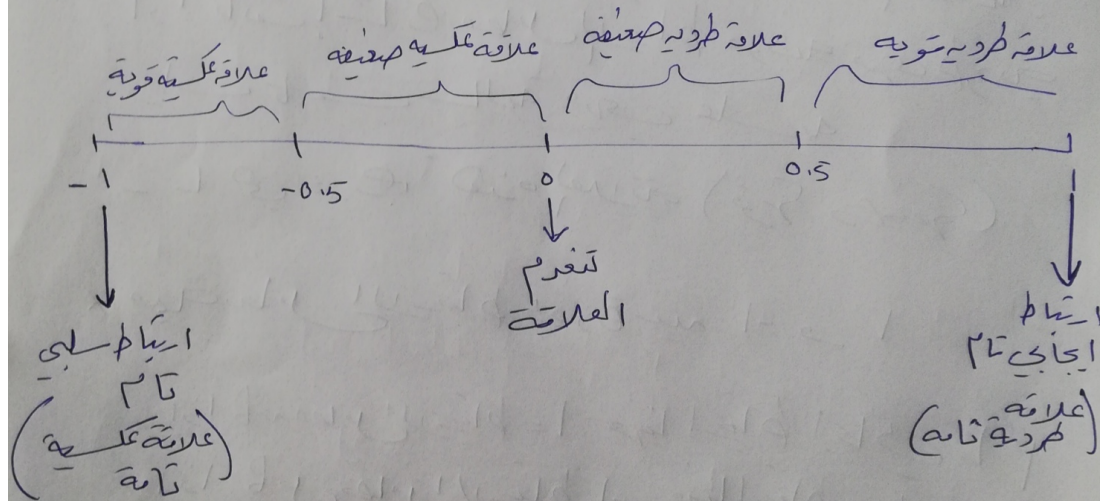 علاقة طرديه قويه
علاقة طرديه ضعيفة
علاقة عكسيه ضعيفه
علاقة عكسية قوية
-1
-0.5
0
0.5
1
ارتباط سلبي
تام
(علاقة عكسية
تامة)
تنعدم
العلاقة
ارتباط
ايجابي تام
(علاقة
طردية تامه)